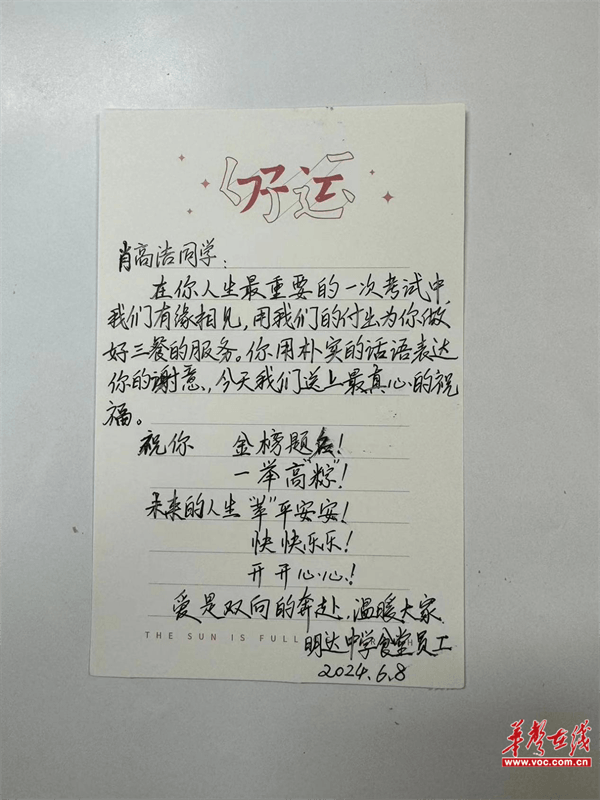 好运
肖高洁同学:
在你人生最重要的一次考试中,
我们有缘相见,用我们的付出为你做
好三餐的服务。你用朴实的话语表达
你的谢意,今天我们送上最真心的祝
福。
祝你 金榜题名!
一举高"粽"!
未来的人生"苹"平安安!
快快乐乐!
开开心心!
爱是双向的奔赴,温暖大家.
THE SUN IS FULL
明达中学食堂员工
2024.6.8
华声在线
www.voc.com.cn